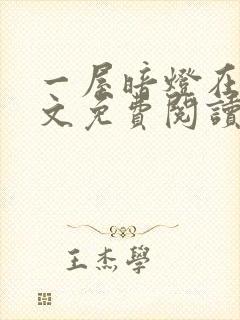 一屋暗燈在
文免費閱讀
王杰學